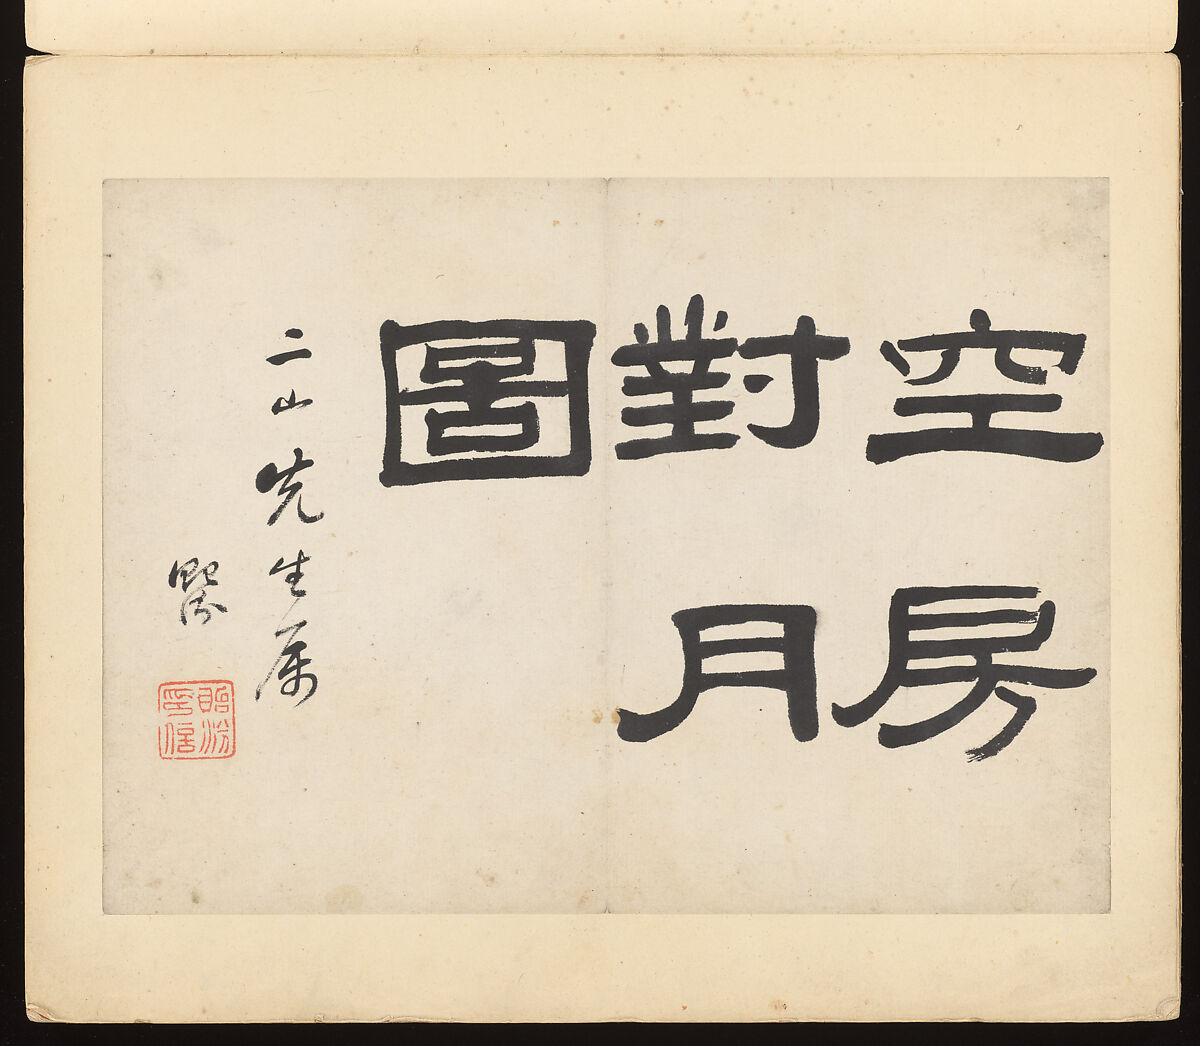 空房
對月
圖
二山先生属
熙